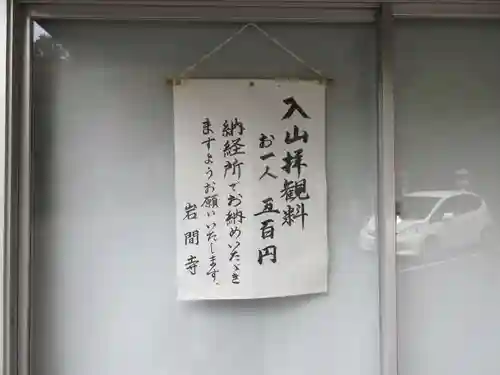 入山拝観料
お一人 五百円
納経所でお納めいただき
ますようお願いいたします。
岩間寺